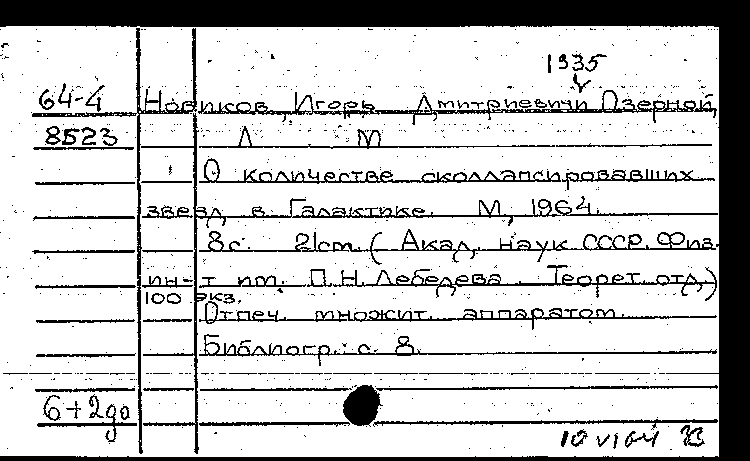 1935
64-4 Новиков, Игорь Дмитриевич и Озерной,
8523 Л М
О количестве сколлапсировавших
звезд в Галактике. М., 1964.
8 с. 21 cm. (Акад. наук СССР. Физ.
ин-т им. П.Н. Лебедева. Теорет. отд.)
100 экз.
Отпеч. множит. аппаратом.
Библиогр.: с. 8.
6+2до
10 VI 64